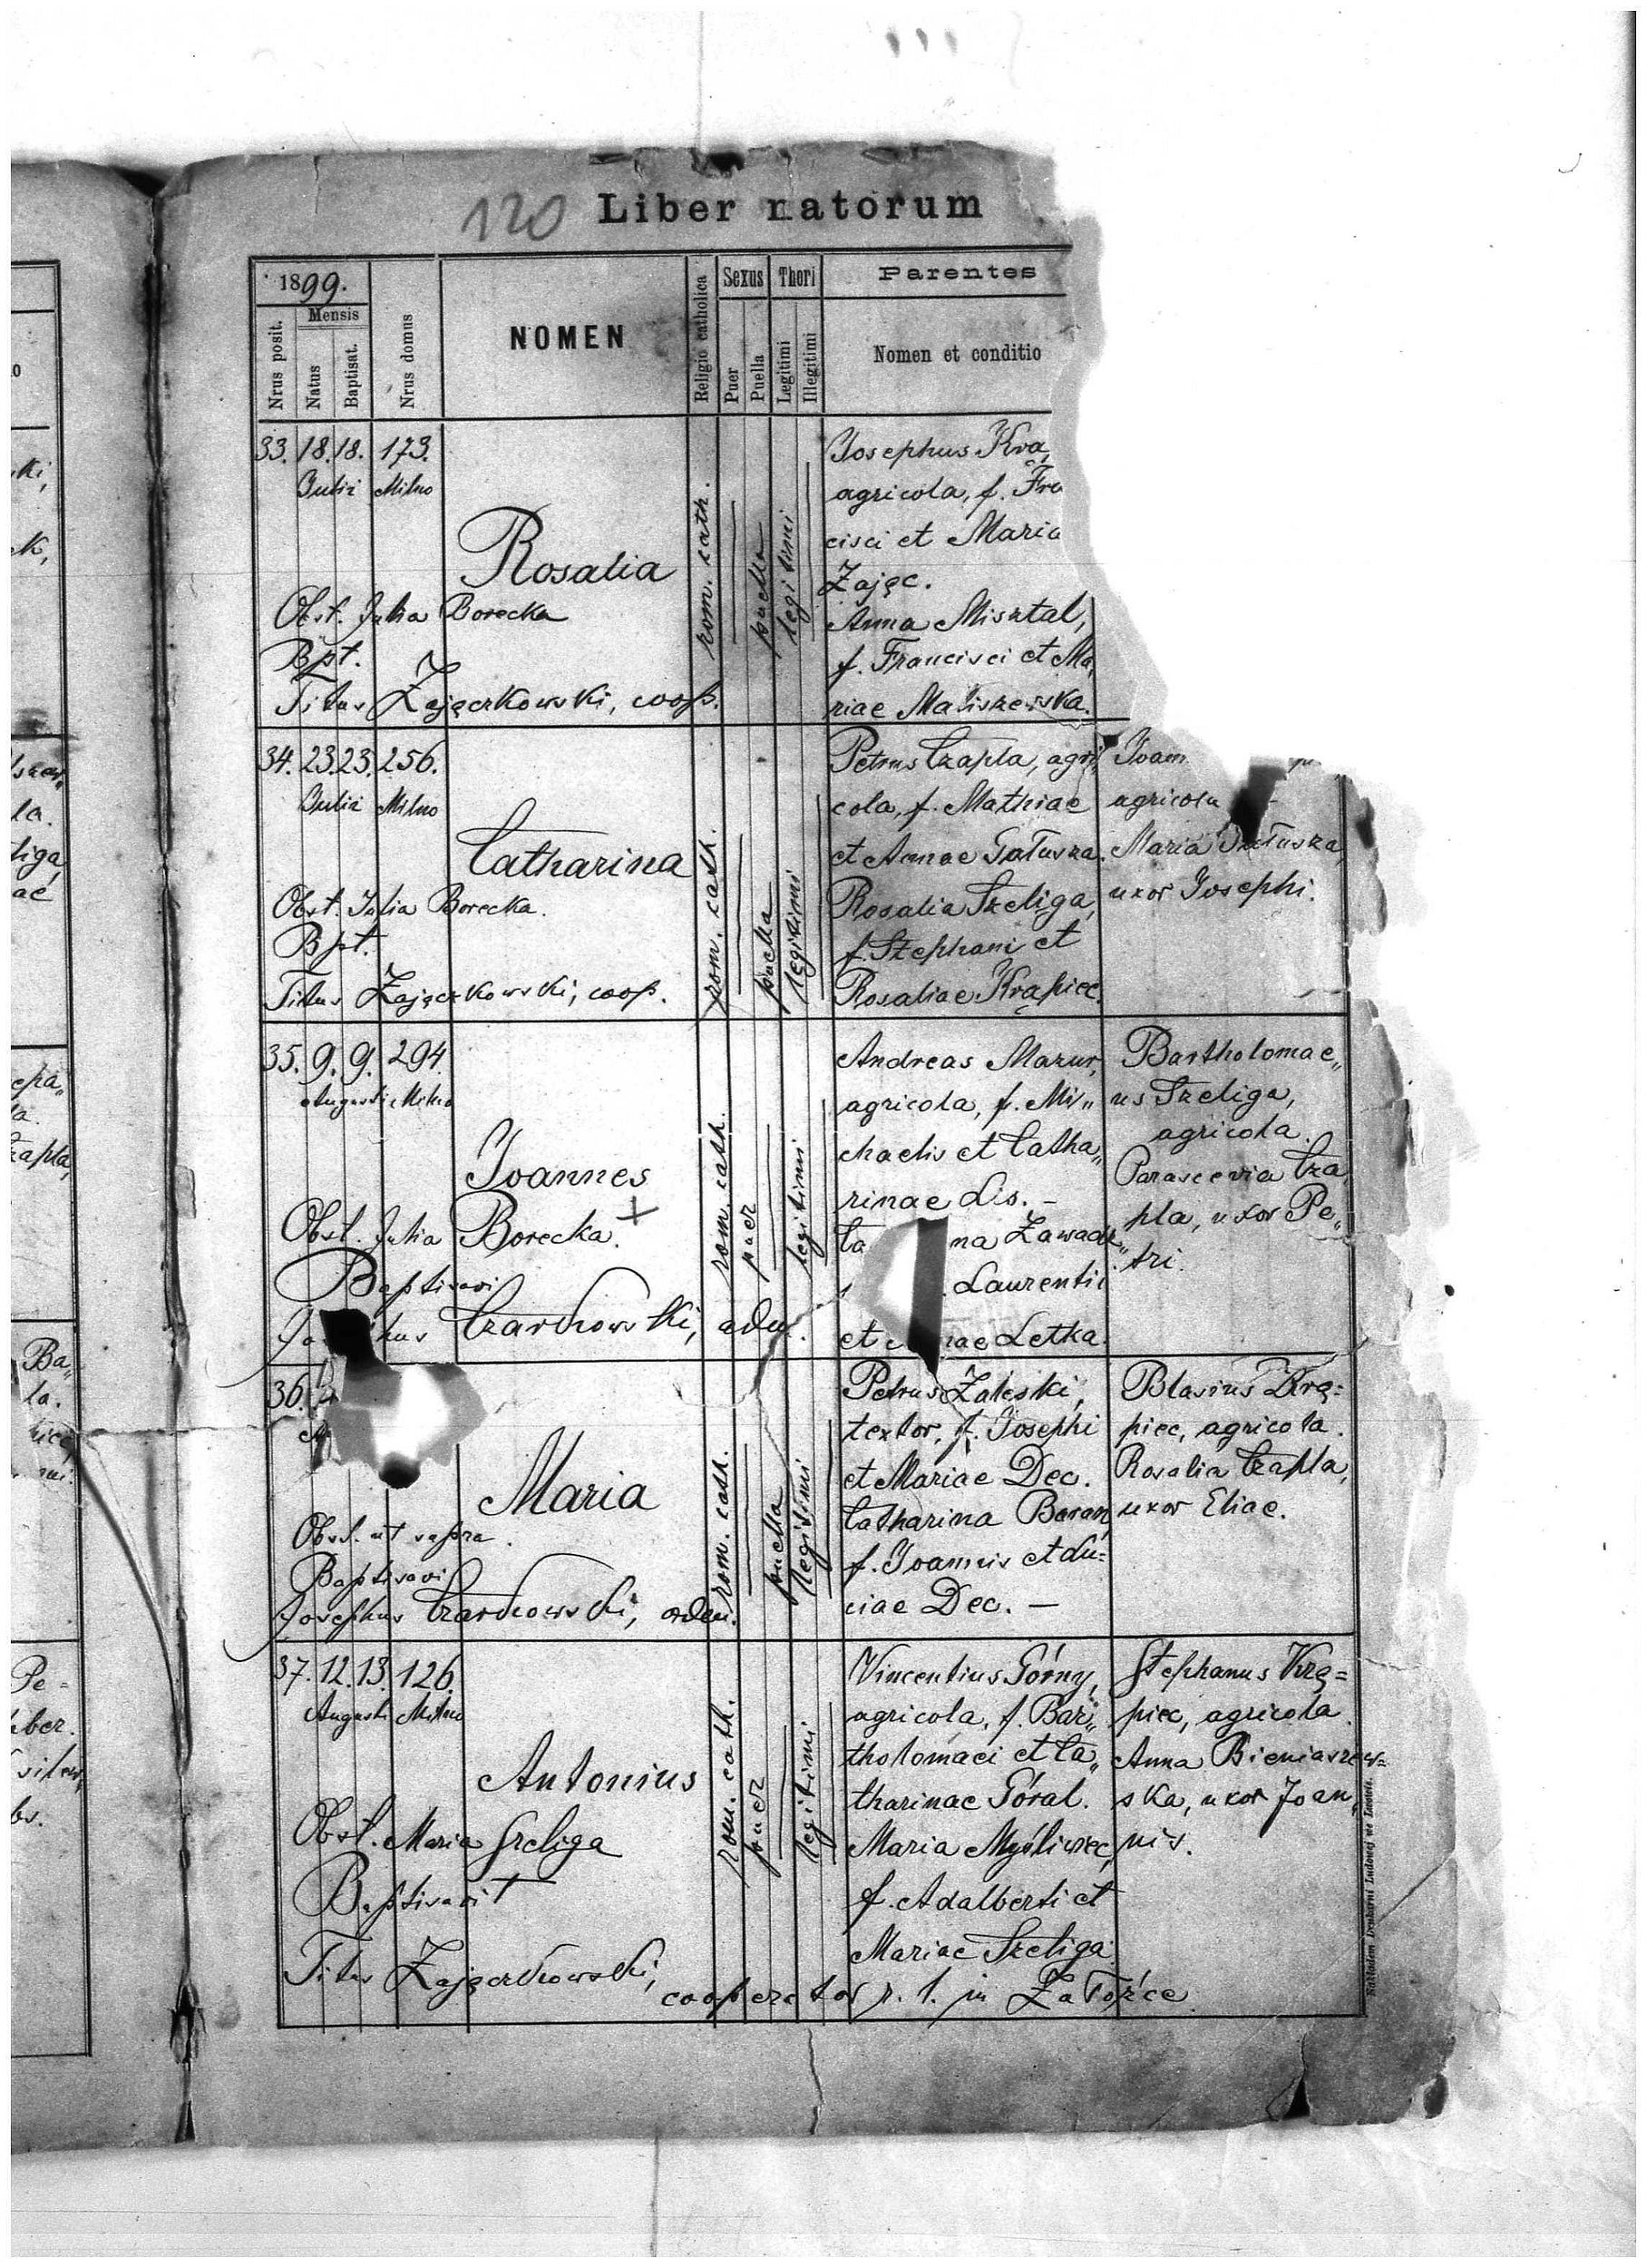 120 Liber natorum
1899.
Nrus posit.
Mensis
Natus
Baptisat.
Nrus domus
NOMEN
Religio catholica
Sexus
Puer
Puella
Thori
Legitimi
Illegitimi
Parentes
Nomen et conditio
33. 18. 18. 173.
Julii Milno
Rosalia
Obst. Julia Borecka
Bpt.
Titus Zajączkowski, coop.
rom. cath.
puella
legitimi
Josephus Krą
agricola, f. Fra
cisci et Maria
Zając.
Anna Misztal,
f. Francisci et Ma„
riae Maliszewska.
34. 23. 23. 256.
Julii Milno
Catharina
Obst. Julia Borecka.
Bpt.
Titus Zajączkowski, coop.
rom. cath.
puella
legitimi
Petrus Czapla, agri„
cola, f. Mathiae
et Annae Gałuszka.
Rosalia Szeliga,
f. Stephani et
Rosaliae Krąpiec.
Joan
agricola
Maria Gałuszka,
uxor Josephi.
35. 9. 9. 294.
Augusti Milno
Joannes
Obst. Julia Borecka.
Baptisavi
Jo hus Czarkowski, adm.
rom. cath.
puer
legitimi
Andreas Mazur,
agricola, f. Mi„
chaelis et Catha„
rinae Lis. –
Ca na Zawadz„
Laurentii
et nae Letka.
Bartholomae„
us Szeliga,
agricola.
Parascevia Cza
pla, uxor Pe„
tri.
36.
Maria
Obst. ut supra.
Baptisavi
Josephus Czarkowski, adm.
rom. cath.
puella
legitimi
Petrus Zaleski,
textor, f. Josephi
et Mariae Dec.
Catharina Baran,
f. Joannis et Lu=
ciae Dec. –
Blasius Krą=
piec, agricola.
Rosalia Czapla,
uxor Eliae.
37. 12. 13. 126.
Augusti Milno
Antonius
Obst. Maria Szeliga
Baptisavit
Titus Zajączkowski,
cooperator r. l. in Załoźce
rom. cath.
puer
legitimi
Vincentius Górny,
agricola, f. Bar„
tholomaei et Ca„
tharinae Góral.
Maria Myśliwiec,
f. Adalberti et
Mariae Szeliga.
Stephanus Krą=
piec, agricola.
Anna Bieniaszew=
ska, uxor Joan„
nis.
Nakładem Drukarni Ludowej we Lwowie.